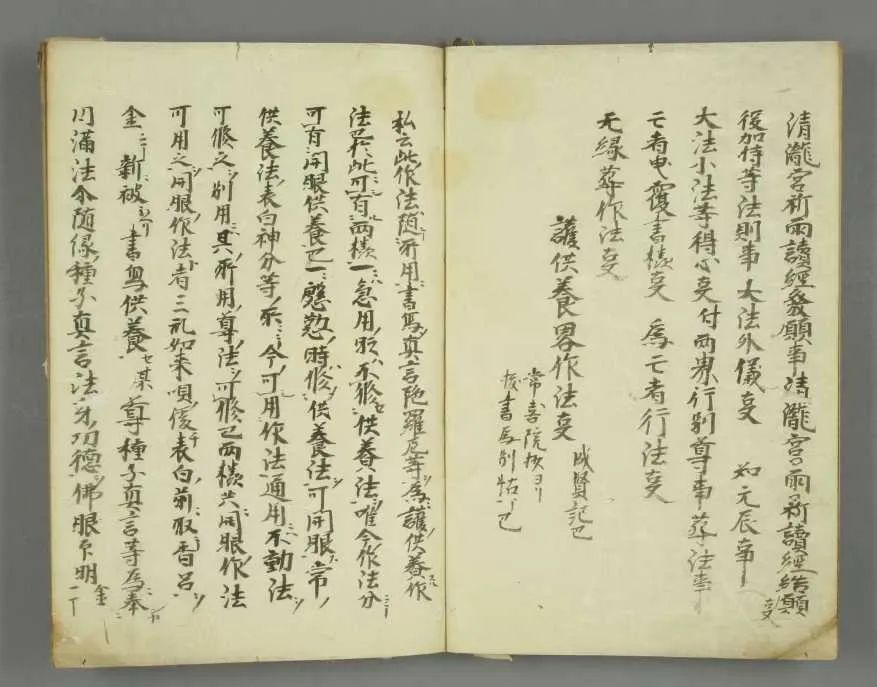 清瀧宮祈雨讀經發願事清瀧宮祈雨讀經結願事
後加持等法則事 大法外儀事 如元辰事
大法小法等得心事付両界行別尊事 葬法事
亡者曳覆書樣事 為亡者行法事
无縁葬作法事
護供養畧作法事
成賢記已
常喜院抄ヨリ
書寫別帖了已
私云此作法随所用書寫真言陀羅尼等為護供養作
法畢此可有両樣一急用時不修供養法唯今作法分
可有開眼供養已一慇懃時修供養法可開眼常
供養法表白神分等所今可用作法通用不動法
可修之別用其所用尊法可修已両樣共開眼作法
可用之開眼作法者三礼如来唄後表白前取香呂
金二丁新被書寫供養セ某尊種子真言等為奉
円滿法令随縁種子真言法身功徳佛眼印明金一丁